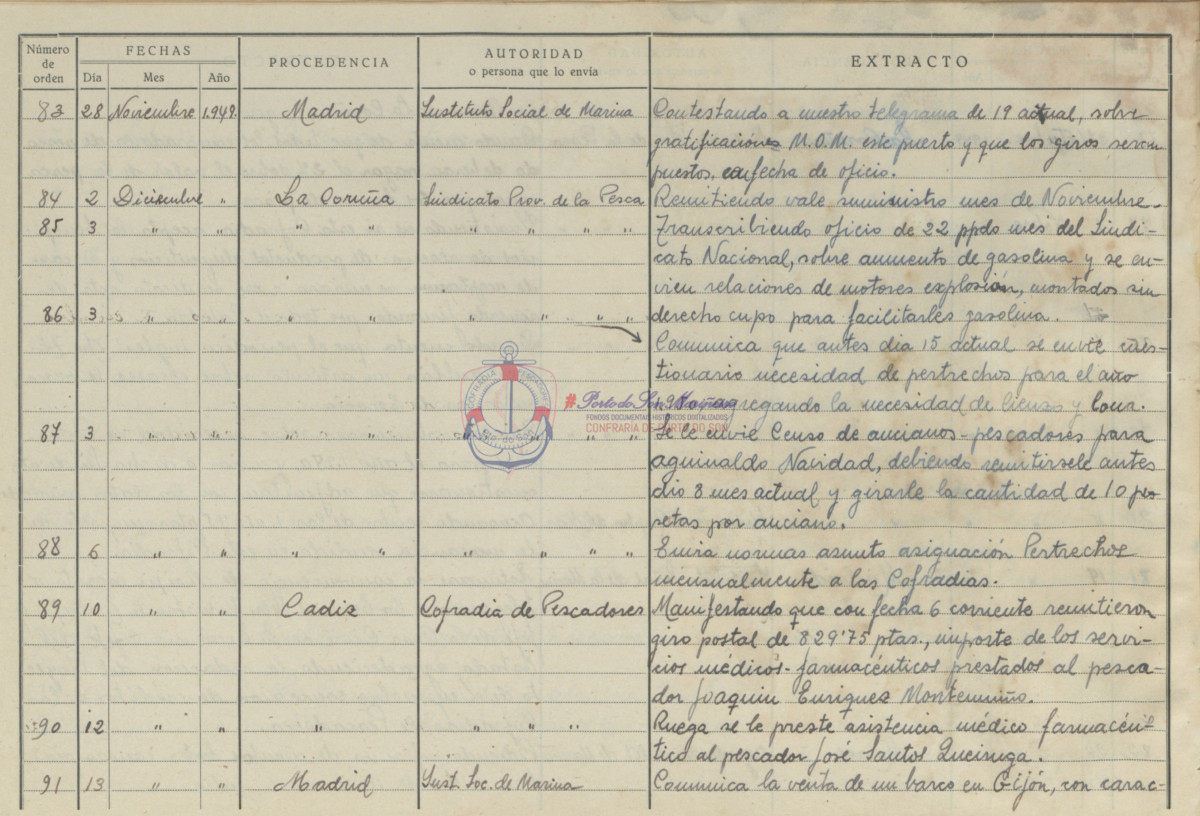 Número de orden FECHAS PROCEDENCIA AUTORIDAD o persona que lo envía EXTRACTO
Día Mes Año
83 28 Noviembre 1.949. Madrid Instituto Social de Marina Contestando a nuestro telegrama de 19 actual, sobre
gratificaciones M.O.M. este puerto y que los giros seran
puestos, con fecha de oficio.
84 2 Diciembre " La Coruña Sindicato Prov. de la Pesca Remitiendo vale suministro mes de Noviembre.
85 3 " " " " " " " " Transcribiendo oficio de 22 ppdo mes del Sindi-
cato Nacional, sobre aumento de gasolina y se en-
vien relaciones de motores explosión, montados sin
86 3 " " " " " " " " derecho cupo para facilitarles gasolina.
Comunica que antes dia 15 actual se envie cues-
tionario necesidad de pertrechos para el año
1950 agregando la necesidad de lienzo y lona.
87 3 " " " " " " " Se le envie Censo de ancianos-pescadores para
aguinaldo Navidad, debiendo remitirsele antes
dia 8 mes actual y girarle la cantidad de 10 pe-
setas por anciano.
88 6 " " " " " " " " Envia normas asunto asignación Pertrechos
mensualmente a las Cofradias.
89 10 " " Cadiz Cofradia de Pescadores Manifestando que con fecha 6 corriente remitieron
giro postal de 829'75 ptas., importe de los servi-
cios médicos-farmacéuticos prestados al pesca-
dor Joaquin Enriquez Montemuiño.
90 12 " " " " " Ruega se le preste asistencia médico farmacéu-
tico al pescador José Santos Queiruga.
91 13 " " Madrid Inst. Soc. de Marina Comunica la venta de un barco en Gijón, con carac-
#PortodoSon
FONDOS DOCUMENTAIS HISTÓRICOS DIGITALIZADOS
CONFRARÍA DE PORTO DO SON